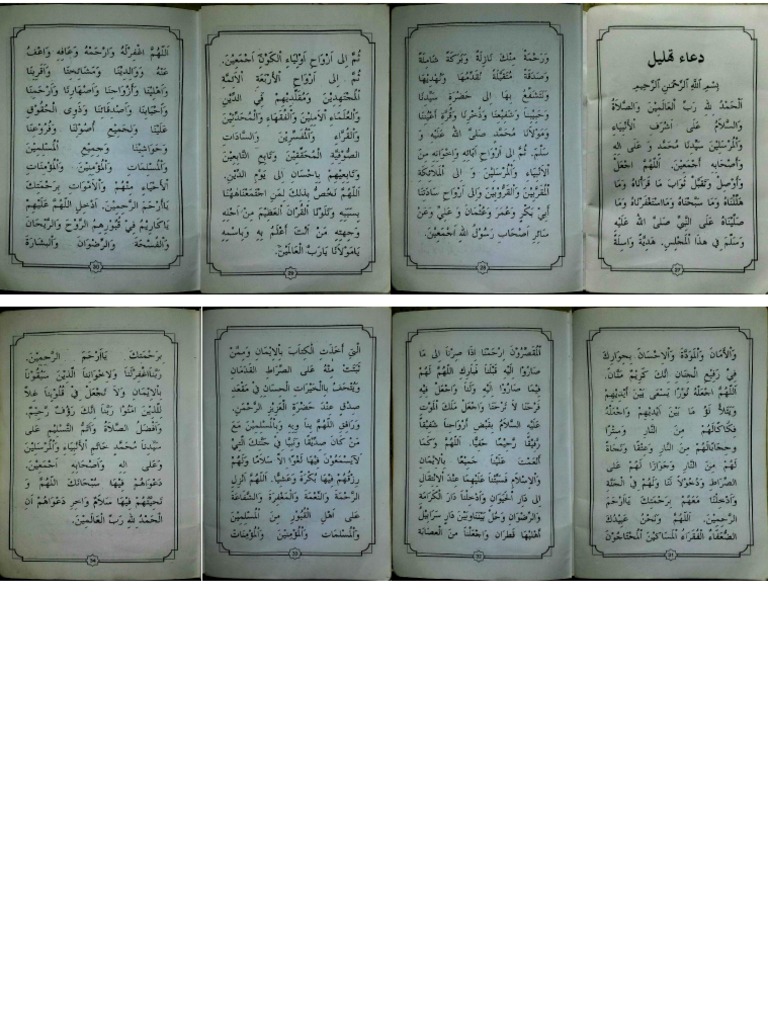 دعاء تهليل
بِسْمِ اللهِ الرَّحْمٰنِ الرَّحِيْمِ
اَلْحَمْدُ لِلهِ رَبِّ الْعَالَمِيْنَ وَالصَّلَاةُ
وَالسَّلَامُ عَلَى اَشْرَفِ الْأَنْبِيَاءِ
وَالْمُرْسَلِيْنَ سَيِّدِنَا مُحَمَّدٍ وَ عَلَى اٰلِهِ
وَأَصْحَابِهِ أَجْمَعِيْنَ. اَللّٰهُمَّ اجْعَلْ
وَأَوْصِلْ وَتَقَبَّلْ ثَوَابَ مَا قَرَأْنَاهُ وَمَا
هَلَّلْنَاهُ وَمَا سَبَّحْنَاهُ وَمَااسْتَغْفَرْنَاهُ وَمَا
صَلَّيْنَاهُ عَلَى النَّبِيِّ صَلَّى اللهُ عَلَيْهِ
وَسَلَّمَ فِي هٰذَا الْمَجْلِسِ. هَدِيَّةً وَاصِلَةً
27
وَرَحْمَةً مِنْكَ نَازِلَةً وَبَرَكَةً شَامِلَةً
وَصَدَقَةً مُتَقَبَّلَةً نُقَدِّمُهَا وَنُهْدِيْهَا
وَنَتَشَفَّعُ بِهَا اِلَى حَضْرَةِ سَيِّدِنَا
وَحَبِيْبِنَا وَشَفِيْعِنَا وَذُخْرِنَا وَقُرَّةِ أَعْيُنِنَا
وَمَوْلَانَا مُحَمَّدٍ صَلَّى اللهُ عَلَيْهِ وَ
سَلَّمَ. ثُمَّ اِلَى أَرْوَاحِ اٰبَائِهِ وَاِخْوَانِهِ مِنَ
الْأَنْبِيَاءِ وَالْمُرْسَلِيْنَ وَ اِلَى الْمَلَائِكَةِ
الْمُقَرَّبِيْنَ وَالْكَرُّوْبِيِّيْنَ وَاِلَى أَرْوَاحِ سَادَتِنَا
أَبِيْ بَكْرٍ وَعُمَرَ وَعُثْمَانَ وَ عَلِيٍّ وَعَنْ
سَائِرِ أَصْحَابِ رَسُوْلِ اللهِ أَجْمَعِيْنَ.
28
ثُمَّ اِلَى اَرْوَاحِ اَوْلِيَاءِ الْكَوْنِ اَجْمَعِيْنَ.
ثُمَّ اِلَى اَرْوَاحِ الْأَرْبَعَةِ الْأَئِمَّةِ
الْمُجْتَهِدِيْنَ وَمُقَلِّدِيْهِمْ فِي الدِّيْنِ
وَالْعُلَمَاءِ الْاٰمِلِيْنَ وَالْفُقَهَاءِ وَالْمُحَدِّثِيْنَ
وَالْقُرَّاءِ وَالْمُفَسِّرِيْنَ وَالسَّادَاتِ
الصُّوْفِيَّةِ الْمُحَقِّقِيْنَ وَتَابِعِ التَّابِعِيْنَ
وَتَابِعِيْهِمْ بِاِحْسَانٍ اِلَى يَوْمِ الدِّيْنِ.
اَللّٰهُمَّ نَخُصُّ بِذٰلِكَ لِمَنِ اجْتَمَعْنَاهٰهُنَا
بِسَبَبِهِ وَتَلَوْنَا الْقُرْاٰنَ الْعَظِيْمَ مِنْ اَجْلِهِ
وَجِهَتِهِ مَنْ أَنْتَ أَعْلَمُ بِهِ وَبِاسْمِهِ
يَامَوْلَانَا يَارَبَّ الْعَالَمِيْنَ.
29
اَللّٰهُمَّ اغْفِرْلَهُ وَارْحَمْهُ وَعَافِهِ وَاعْفُ
عَنْهُ وَوَالِدِيْنَا وَمَشَائِخِنَا وَأَقْرِبِنَا
وَأَهْلِيْنَا وَأَزْوَاجِنَا وَأَصْهَارِنَا وَأَرْحَمِنَا
وَأَحْبَابِنَا وَأَصْدِقَائِنَا وَذَوِى الْحُقُوْقِ
عَلَيْنَا وَبِجَمِيْعِ أُصُوْلِنَا وَفُرُوْعِنَا
وَحَوَاشِيْنَا وَجَمِيْعِ الْمُسْلِمِيْنَ
وَالْمُسْلِمَاتِ وَالْمُؤْمِنِيْنَ وَالْمُؤْمِنَاتِ
الْأَحْيَاءِ مِنْهُمْ وَالْأَمْوَاتِ بِرَحْمَتِكَ
يَاأَرْحَمَ الرَّحِمِيْنَ. اَدْخِلِ اللّٰهُمَّ عَلَيْهِمْ
يَاكَرِيْمُ فِيْ قُبُوْرِهِمُ الرَّوْحَ وَالرَّيْحَانَ
وَالْفُسْحَةَ وَالرِّضْوَانَ وَالْبِشَارَةَ
30
وَالْأَمَانَ وَالْمَوَدَّةَ وَالْاِحْسَانَ بِجِوَارِكَ
فِيْ رَفِيْعِ الْجِنَانِ اِنَّكَ كَرِيْمٌ مَنَّانٌ.
اَللّٰهُمَّ اجْعَلْهُ نُوْرًا يَسْعَى بَيْنَ أَيْدِيْهِمْ
مَا بَيْنَ أَيْدِيْهِمْ وَاجْعَلْهُ
فِكَاكًالَهُمْ مِنَ النَّارِ وَسِتْرًا
وحِجَابًالَهُمْ مِنَ النَّارِ وَعِتْقًا وَنَجَاةً
لَهُمْ مِنَ النَّارِ وَجَوَازًا لَهُمْ عَلَى
الصِّرَاطِ وَدُخُوْلًا لَنَا وَلَهُمْ فِيْ الْجَنَّةِ
وَأَدْخِلْنَا مَعَهُمْ بِرَحْمَتِكَ يَاأَرْحَمَ
الرَّحِمِيْنَ. اَللّٰهُمَّ وَنَحْنُ عَبِيْدُكَ
الضُّعَفَاءُ الْفُقَرَاءُ الْمَسَاكِيْنَ الْمُحْتَاجُوْنَ
31
الْمُقَصِّرُوْنَ اِرْحَمْنَا اِذَا صِرْنَا اِلَى مَا
صَارُوْا اِلَيْهِ قَبْلَنَا فَبَارِكِ اللّٰهُمَّ لَهُمْ
فِيْمَا صَارُوْا اِلَيْهِ وَلَنَا وَاجْعَلْ فِيْهِ
فَرَحَنَا لَا تَرَحَنَا وَاجْعَلْ مَلَكَ الْمَوْتِ
عَلَيْهِ السَّلَامُ بِقَبْضِ أَرْوَاحِنَا شَفِيْقًا
رَفِيْقًا رَحِيْمًا حَفِيًّا. اَللّٰهُمَّ وَكَمَا
أَنْعَمْتَ عَلَيْنَا جَمِيْعًا بِالْاِيْمَانِ
وَالْاِسْلَامِ فَسَبِّتْنَا عَلَيْهِمَا عِنْدَ الْاِنْتِقَالِ
اِلَى دَارِ الْحَيَوَانِ وَاَدْخِلْنَا دَارَ الْكَرَامَةِ
وَالرِّضْوَانِ وَحُلْ بَيْنَنَاوَبَيْنَ دَارٍ سَرَابِيْلُ
أَهْلِهَا قَطِرَانٍ وَاجْعَلْنَا مِنَ الْعِصَابَةِ
32
الَّتِيْ أَخَذَتِ الْكِتَابَ بِالْاِيْمَانِ وَمِمَّنْ
ثَبَتَتْ مِنْهُ عَلَى الصِّرَاطِ الْقَدَمَانِ
وَيُتْحَفُ بِالْخَيْرَاتِ الْحِسَانِ فِيْ مَقْعَدِ
صِدْقٍ عِنْدَ حَضْرَةِ الْعَزِيْزِ الرَّحْمٰنِ.
وَرَافِقِ اللّٰهُمَّ بِنَا وَبِهِ وَبِالْمُسْلِمِيْنَ مَعَ
مَنْ كَانَ صِدِّيْقًا وَنَبِيًّا فِيْ جَنَّتِكَ الَّتِيْ
لَايَسْمَعُوْنَ فِيْهَا لَغْوًا اِلَّا سَلَامًا وَلَهُمْ
رِزْقُهُمْ فِيْهَا بُكْرَةً وَعَشِيًّا. اَللّٰهُمَّ اَنْزِلِ
الرَّحْمَةَ وَالنِّعْمَةَ وَالْمَغْفِرَةَ وَالشَّفَاعَةَ
عَلَى أَهْلِ الْقُبُوْرِ مِنَ الْمُسْلِمِيْنَ
وَالْمُسْلِمَاتِ وَالْمُؤْمِنِيْنَ وَالْمُؤْمِنَاتِ
33
بِرَحْمَتِكَ يَاأَرْحَمَ الرَّحِمِيْنَ.
رَبَّنَااغْفِرْلَنَا وَلِاِخْوَانِنَا الَّذِيْنَ سَبَقُوْنَا
بِالْاِيْمَانِ وَلَا تَجْعَلْ فِيْ قُلُوْبِنَا غِلًّا
لِلَّذِيْنَ اٰمَنُوْا رَبَّنَا اِنَّكَ رَؤُوْفٌ رَحِيْمٌ.
وَأَفْضَلُ الصَّلَاةِ وَأَتَمُّ التَّسْلِيْمِ عَلَى
سَيِّدِنَا مُحَمَّدٍ خَاتَمِ الْأَنْبِيَاءِ وَالْمُرْسَلِيْنَ
وَعَلَى اٰلِهِ وَأَصْحَابِهِ أَجْمَعِيْنَ.
دَعْوَاهُمْ فِيْهَا سُبْحَانَكَ اللّٰهُمَّ وَ
تَحِيَّتُهُمْ فِيْهَا سَلَامٌ وَاٰخِرِ دَعْوَاهُمْ اَنِ
الْحَمْدُ لِلهِ رَبِّ الْعَالَمِيْنَ.
34